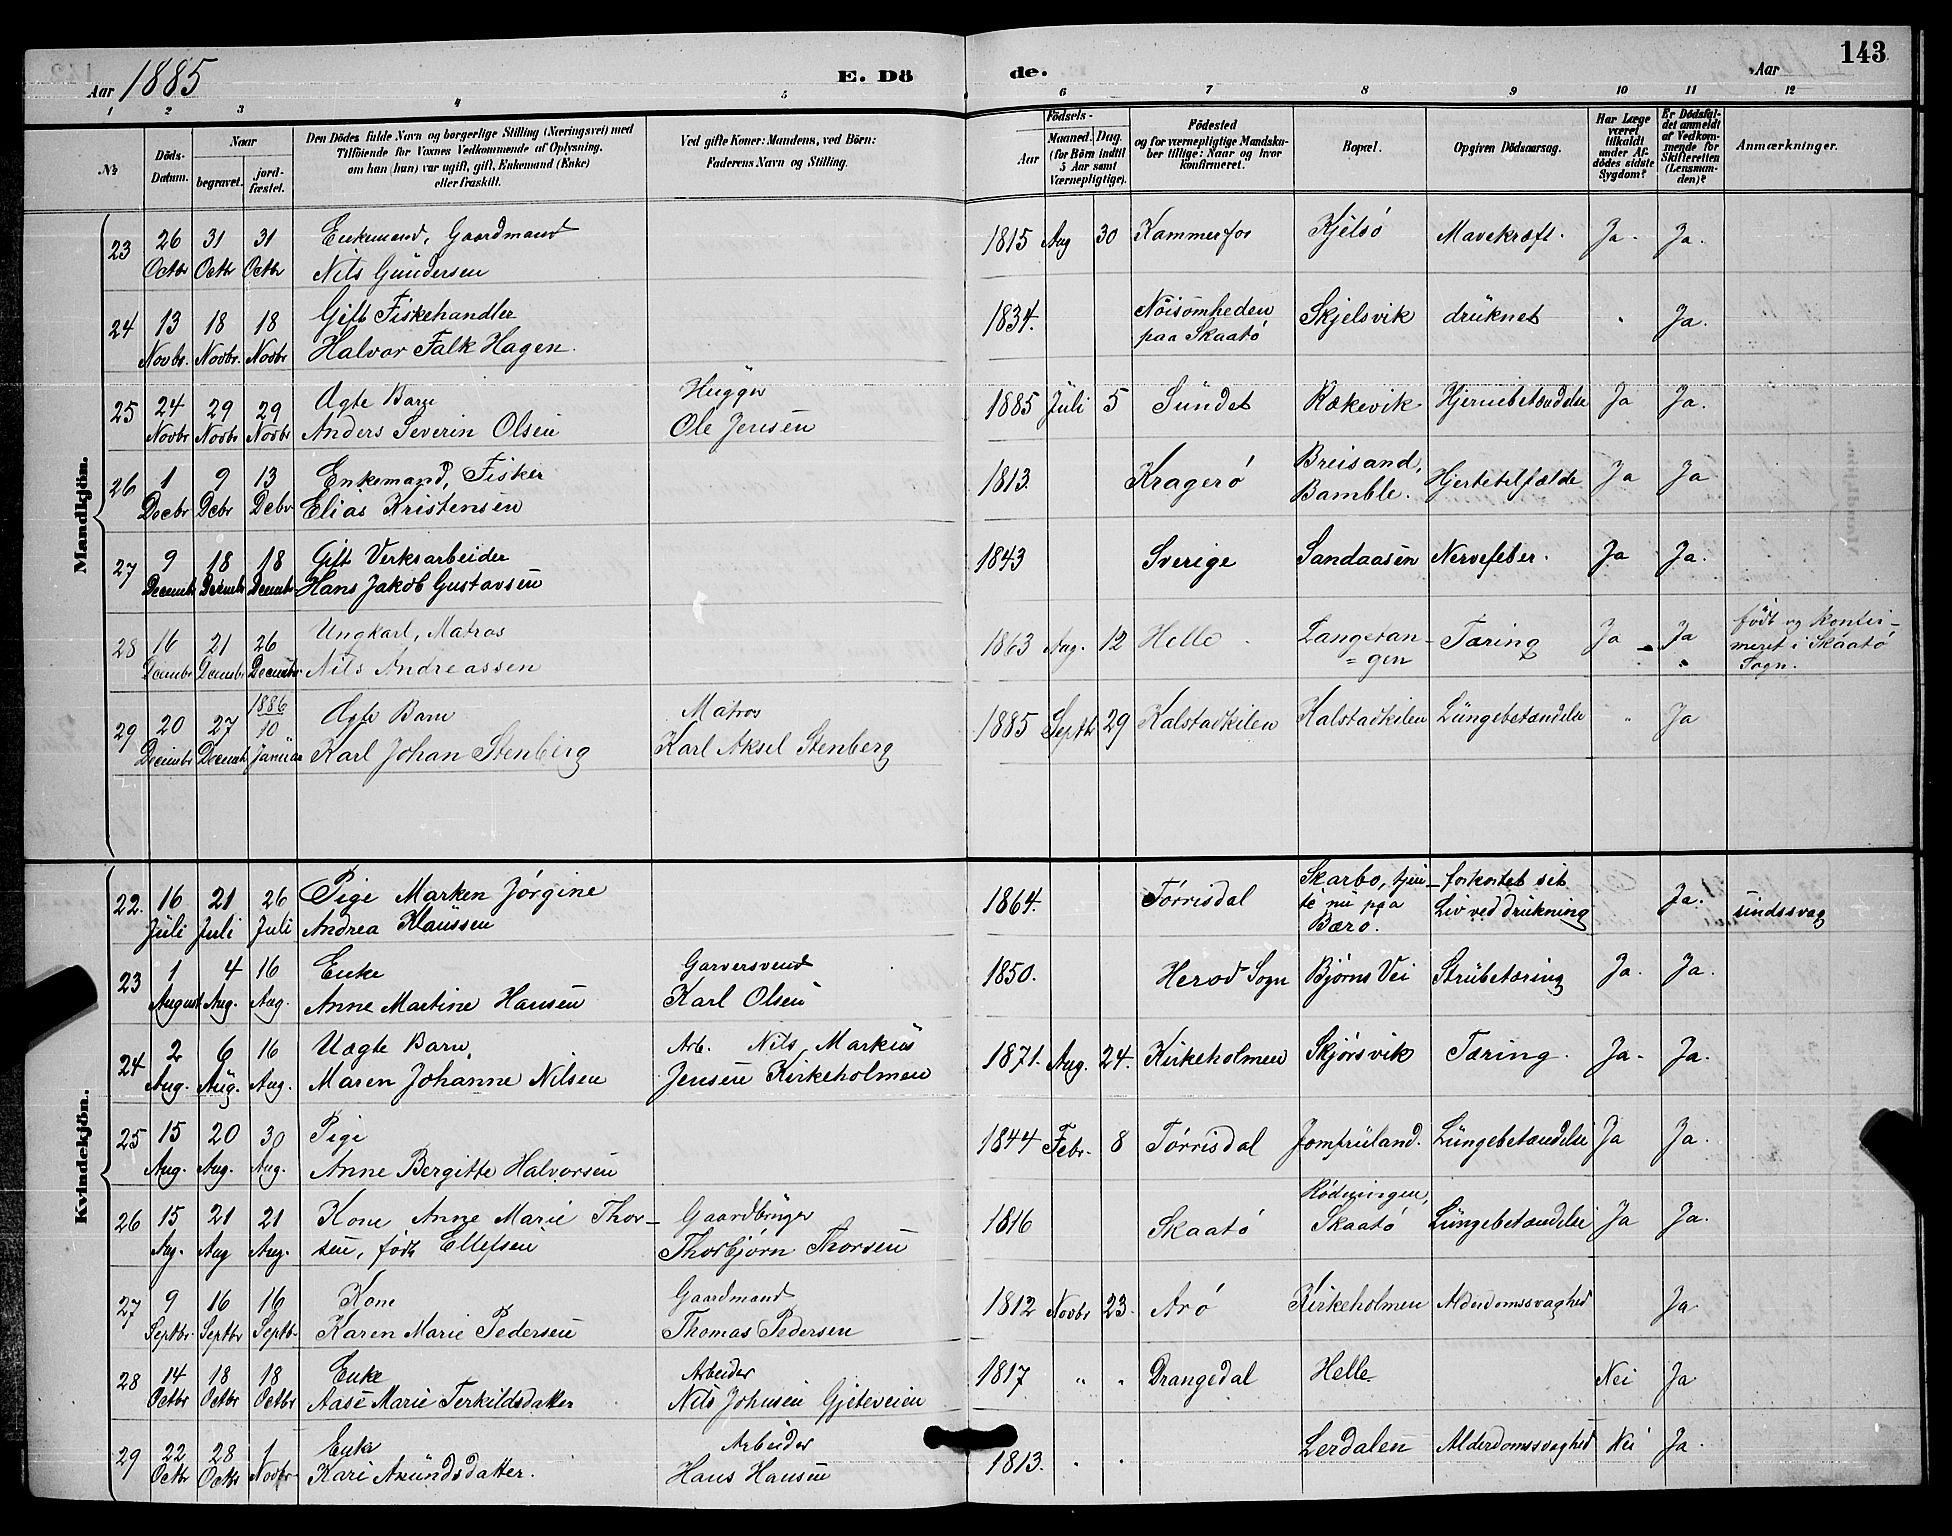 143
Aar 1885 E. Dö de. Aar
1 2 3 4 5 6 7 8 9 10 11 12
№ Döds-Datum. Naar begravet. jord-fæstet. Den Dödes fulde Navn og borgerlige Stilling (Næringsvei) med Tilföiende for Voxnes Vedkommende af Oplysning, om han (hun) var ugift, gift, Enkemand (Enke) eller fraskilt. Ved gifte Koner: Mandens, ved Börn: Faderens Navn og Stilling. Födsels- Aar Maaned. Dag. (for Börn indtil 5 Aar samt Værnepligtige). Födested og for værnepligtige Mandskaber tillige: Naar og hvor konfirmeret. Bopæl. Opgiven Dödsaarsag. Har Læge været tilkaldt under Afdödes sidste Sygdom? Er Dödsfaldet anmeldt af Vedkommende for Skifteretten (Lensmanden)? Anmærkninger.
Mandkjön.
23 26 31 31 Enkemand, Gaardmand 1815 Aug 30 Kammerfos Kjelsö Mavekræft. Ja. Ja.
Octbr Octbr Octbr Nils Gundersen
24 13 18 18 Gift Fiskehandler 1834. Nöisomheden Skjelsvik druknet " Ja.
Novbr. Novbr. Novbr Halvor Falk Hagen. paa Skaatö
25 24 29 29 Ægte Barn Hugger 1885 Juli 5 Sundet Rækevik Hjernebetændelse Ja Ja.
Novbr Novbr Novbr Anders Severin Olsen Ole Jensen
26 1 9 13 Enkemand, Fisker 1813. Kragerö Breisand, Hjertetilfælde Ja Ja
Decbr Debr Debr Elias Kristensen Bamble.
27 9 18 18 Gift Verksarbeider 1843 Sverige Sandaasen Nervefeber. Ja Ja.
Decembr Decembr Decembr Hans Jakob Gustavsen
28 16 21 26 Ungkarl, Matros 1863 Aug. 12 Helle Langetan- Tæring Ja Ja födt og konfir-
Decembr Decembr Decembr Nils Andreassen =gen meret i Skaatö
Sogn.
29 20 27 1886 10 Ægte Barn Matros 1885 Septbr 29 Kalstadkilen Kalstadkilen Lungebetændelse " Ja
Decembr Decembr Januar Karl Johan Stenberg Karl Aksel Stenberg
Kvindekjön.
22. 16 21 26 Pige Marken Jörgine 1864. Törrisdal Skarbo, tjen- forkortet sit Ja. sindssvag
Juli Juli Juli Andrea Klaussen te nu paa Liv ved drukning
Bærö.
23 1 4 16 Enke Garversvend 1850. Herod Sogn Björns Vei Strubetæring Ja. Ja.
August Aug. Aug. Anne Martine Hansen Karl Olsen
24 2 6 16 Uægte Barn, Arb. Nils Markus 1871. Aug. 24. Kirkeholmen Skjörsvik Tæring. Ja. Ja.
Aug. Aug. Aug. Maren Johanne Nilsen Jensen Kirkeholmen
25 15 20 30 Pige 1844 Febr. 8 Törrisdal Jomfruland. Lungebetændelse Ja Ja.
Aug. Aug. Aug. Anne Bergitte Halvorsen
26 15 21 21 Kone Anne Marie Thor- Gaardbruger 1816 Skaatö Rödningen, Skaatö Lungebetændelse Ja Ja.
Aug. Aug Aug. sen, födt Ellefsen Thorbjörn Thorsen
27 9 16 16 Kone Gaardmand 1812 Novbr 23. Arö Kirkeholmen Alderdomssvaghed Ja
Septbr. Septbr Septb. Karen Marie Pedersen Thomas Pedersen
28 14 18 18 Enke Arbeider 1817 " " Drangedal Helle Nei Ja
Octbr Octbr Octbr Aase Marie Terkildsdatter Nils Johnsen Gjeteveien
29 22 28 1 Enke Arbeider 1813. " " Lerdalen Alderdomssvaghed Nei Ja.
Octbr Octbr Novbr. Kari Amundsdatter. Hans Hansen